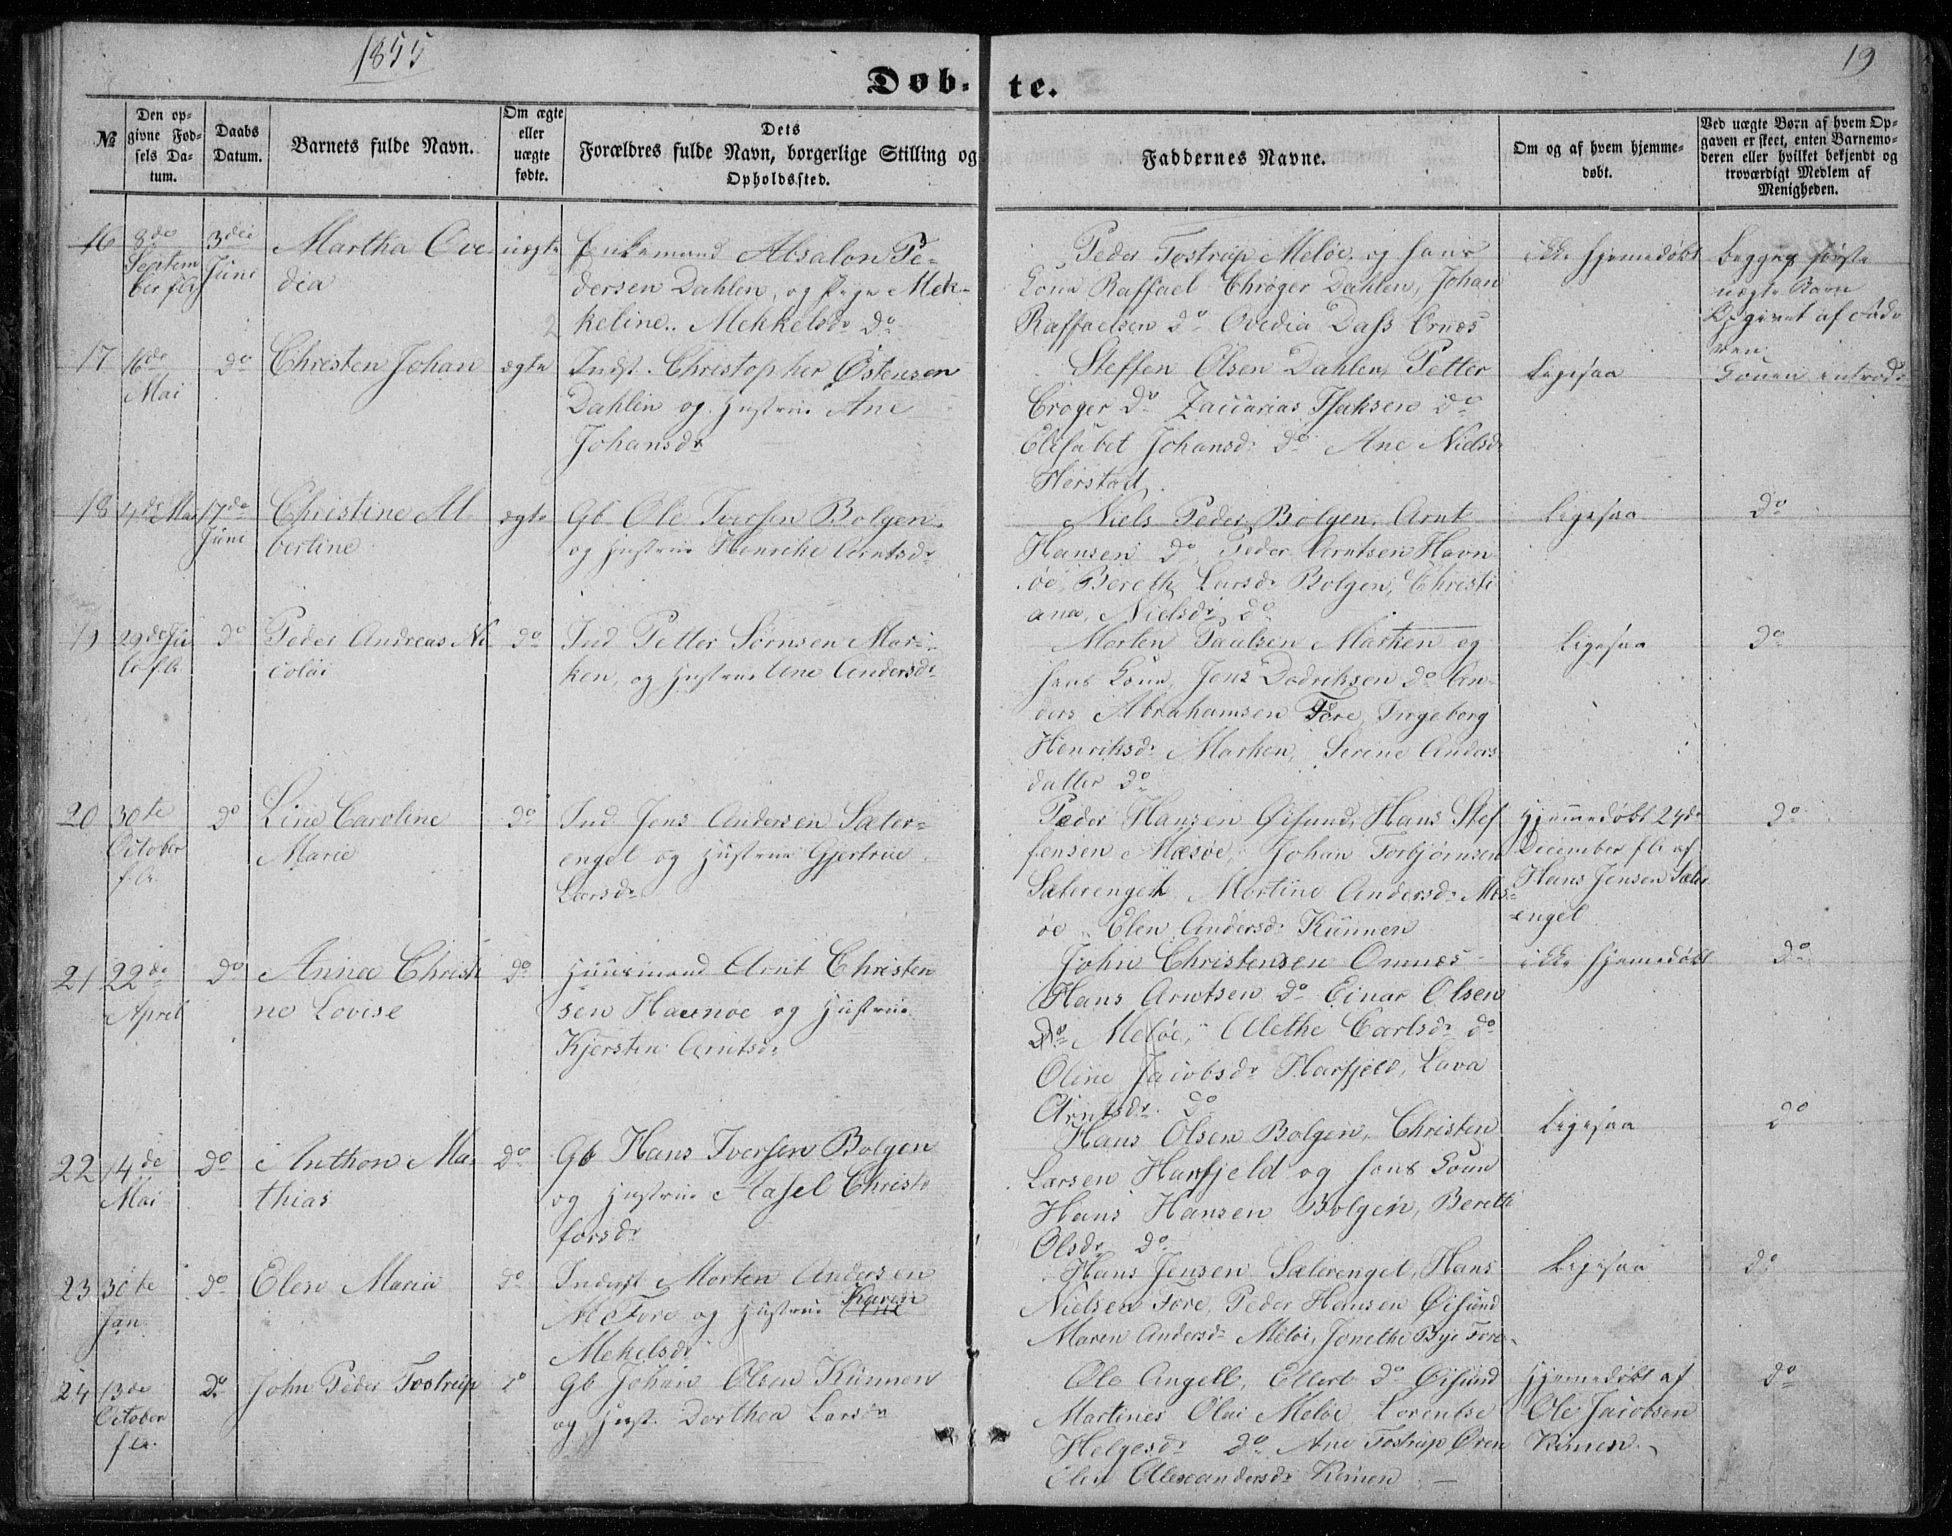 1855
19
Døb-te.
№
Den op-
givne Fød-
sels Da-
tum.
Daabs
Datum.
Barnets fulde Navn.
Om ægte
eller
uægte
fødte.
Dets
Forældres fulde Navn, borgerlige Stilling og
Opholdssted.
Faddernes Navne.
Om og af hvem hjemme-
døbt.
Ved uægte Børn af hvem Op-
gaven er skeet, enten Barnemo-
deren eller hvilket bekjendt og
troværdigt Medlem af
Menigheden.
16
8de
Septem
ber
3die
Juni
Martha Ove
dia
uegte
Enkemand Absalon Pe-
dersen Dahlen, og Pige Mek-
keline Mekkelsdr do
Peder Tostrup Meløe og hans
Kone Raffael Chrøger Dahlen, Johan
Raffaelsen do Ovedia Dass Ørnes
ikke hjemedøbt
begges første
uægte Barn
Opgivet af Fade
ren
17
16de
Mai
do
Christen Johan
egte
Indst. Christopher Østensen
Dahlen og Hustrue Ane
Johansdr
Steffen Olsen Dahlen, Petter
Crøger do Zacarias Isaksen do
Elisabet Johansdr do Ane Nielsdr
Herstad
Ligesaa
Konen introd.
18
4de Mai
17de
Juni
Christine Al
bertine
egte
Gb Ole Iversen Bolgen
og Hustrue Henrike Arntsdr
Niels Peder Bolgen, Arnt
Hansen do Peder Arntsen Havn
øe, Bereth Larsdr Bolgen, Christi
ana Nielsdr do
Ligesaa
do
19
29de Ju
li f.A.
do
Peder Andreas Ni
colai
do
Ind Petter Sørnsen Mar-
ken, og Hustrue Ane Andersdr
Morten Paulsen Marken og
hans Kone, Jens Dodriksen do An
ders Abrahamsen Fore, Ingeborg
Henriksdr Marken, Serine Anders
datter do
Ligesaa
do
20
30te
October
f.A.
do
Line Caroline
Marie
do
Ind Jens Andersen Sæter-
enget og Hustrue Gjertrue
Larsdr
Peder Hansen Øisund, Hans Stef
fensen Mæsøe, Johan Torbjørnsen
Sæterenget Martine Andersdr Mes-
øe Elen Andersdr Kunnen
Hjemmedøbt 24de
December f.A. af
Hans Jensen Sæter
enget
do
21
22de
April
do
Anna Christi
ne Lovise
do
Huusmand Arnt Christen
sen Havnøe og Hustrue
Kjersten Arntsdr
John Christensen Omnes
Hans Arntsen do Einar Olsen
do Meløe, Alethe Carlsdr do
Oline Jacobsdr Harfjeld, Lava
Arntsdr do
ikke hjemedøbt
do
22
14de
Mai
do
Anthon Ma-
thias
do
Gb Hans Iversen Bolgen
og Hustrue Hasel Christo
forsdr
Hans Olsen Bolgen, Christen
Larsen Harfjeld og hans Kone
Hans Hansen Bolgen, Bereth
Olsdr do
Ligesaa
do
23
30te
Jan
do
Elen Maria
do
Inderst Morten Andersen
Fore og Hustrue Karen
Mekelsdr
Hans Jensen Sæterenget, Hans
Nielsen Fore, Peder Hansen Øisund
Maren Andersdr Meløe, Jonethe Bye Fore
Ligesaa
do
24
13de
October
f.A.
do
John Peder Tostrup
do
Gb Johan Olsen Kunnen
og Hust. Dorthea Larsdr
Ole Angell, Ellert do Øisund
Martines Olai Meløe Lorentse
Helgesdr do Ane Tostrup Øren
Elen Alexandersdr Kunen
Hjemedøbt af
Ole Jacobsen
Kunen
do